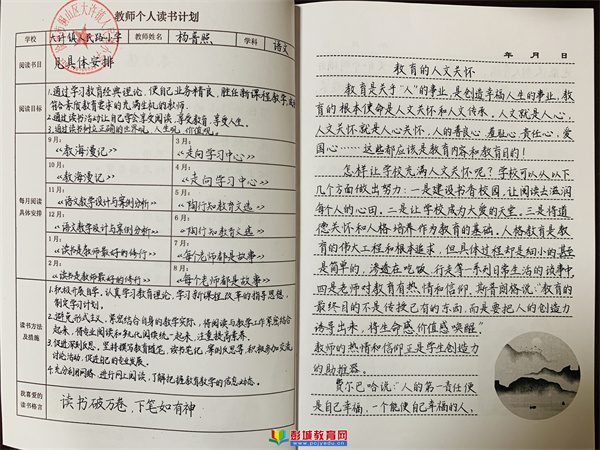 教师个人读书计划
学校 大许镇人民路小学 教师姓名 杨普照 学科 语文
阅读书目 见具体安排
阅读目标
1.通过学习教育经典理论,使自己业务精良,胜任新课程教学,成
符合素质教育要求的充满生机的教师.
2.通过读书活动让自己学会享受阅读,享受教育,享受人生.
3.通过读书树立正确的世界观,人生观,价值观.
每月阅读具体安排
9月: 《教海漫记》
3月: 《走向学习中心》
10月: 《教海漫记》
4月: 《走向学习中心》
11月: 《语文教学设计与案例分析》
5月: 《陶行知教育文选》
12月: 《语文教学设计与案例分析》
6月: 《陶行知教育文选》
1月: 《读书是教师最好的修行》
7月: 《每个老师都是故事》
2月: 《读书是教师最好的修行》
8月: 《每个老师都是故事》
读书方法与措施
1.积极开展自学,认真学习教育理论,学习新课程改革的指导思想,
制定学习计划.
2.避免形式主义,紧密结合自身的教学实际,将阅读与教学工作紧密结合
起来,将专业阅读和文化阅读统一起来,注重提高素养.
3.促进深刻反思,坚持撰写教育随笔,读书笔记,案例反思等,积极参加交流
讨论活动,促进自己的专业发展.
4.充分利用网络,进行网上阅读,了解把握教育教学的信息动态.
我喜爱的读书格言 读书破万卷,下笔如有神
年 月 日
教育的人文关怀
教育是关于“人”的事业,是创造幸福人生的事业,教
育的根本使命是人文关怀和人文传承,人文就是人心,
人文关怀就是人心关怀,人的善良心、羞耻心、责任心、爱
国心……这些都应该是教育内容和教育目的!
怎样让学校充满人文关怀呢?学校可以从以下
几个方面做出努力:一是建设书香校园,让阅读去滋润
每个人的心田,二是让学校成为大爱的天堂,三是将道
德关怀和人格培养作为教育的基础。人格教育是教
育的伟大工程和根本追求,但具体过程却是细小的甚至
是简单的,渗透在吃饭、行走等一系列日常生活的琐事中
四是老师对教育有热情和信仰,斯普朗格说:“教育的
最终目的不是传授已有的东西,而是要把人的创造力
诱导出来,将生命感价值感唤醒”
教师的热情和信仰正是学生创造力
的助推器。
费尔巴哈说:“人的第一责任便
是自己幸福,一个能使自己幸福的人,
彭城教育网
www.pcjyedu.cn